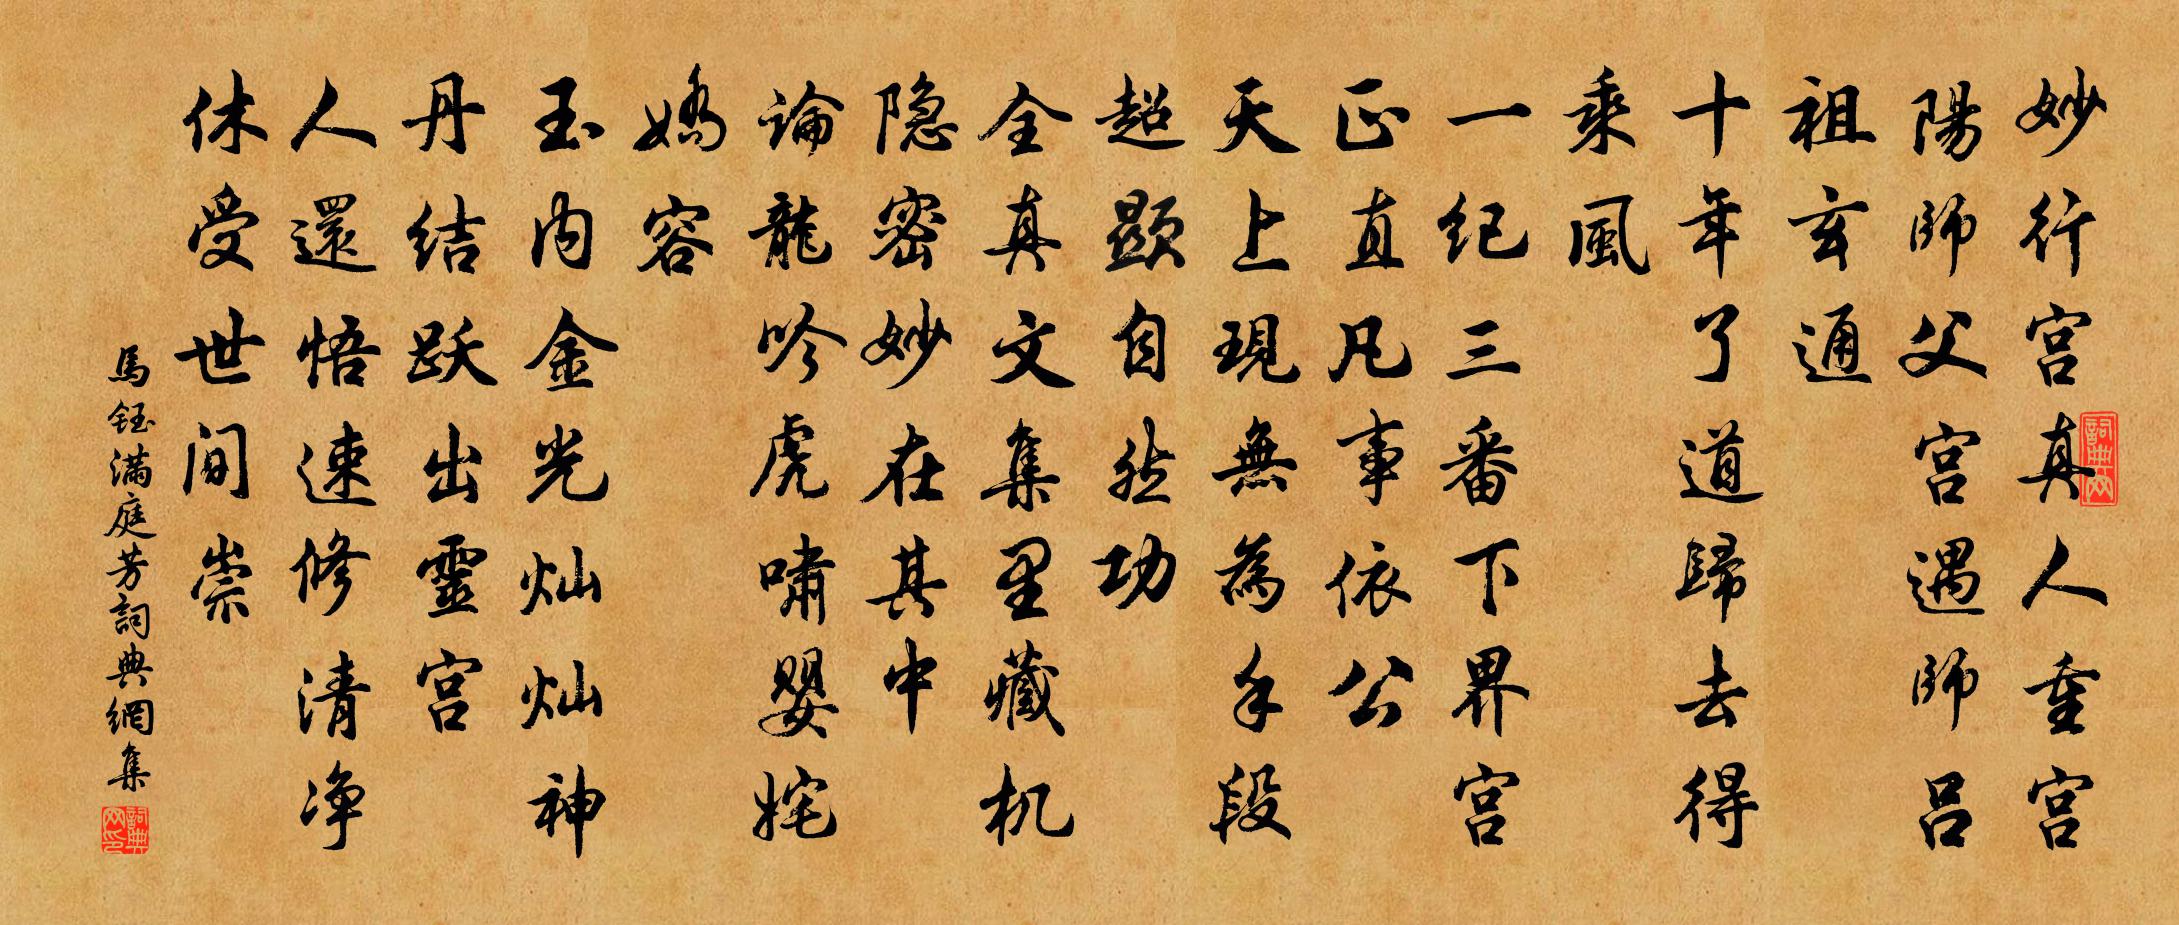 妙行宫真人重宫
陽師父宫遇師吕
祖玄通
十年了道歸去得
乘風
一纪三番下界宫
正直凡事依公
天上現無為手段
超顯自然功
全真文集里藏机
隐密妙在其中
論龍吟虎嘯嬰姹
嬌容
玉内金光灿灿神
丹结跃出靈宫
人還悟速修清净
休受世间崇
馬鈺满庭芳詞典網集
詞典网
詞典网印